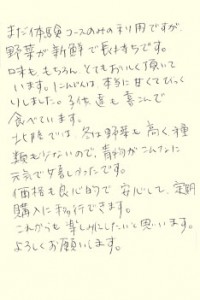 まだ体験コースのみの利用ですが、
野菜が新鮮で長持ちです。
味も、もちろん、とてもおいしく頂いて
います。にんじんは本当に甘くてびっく
りしました。子供達も喜こんで
食べています。
北陸では、冬は野菜も高く、種
類も少ないので、青物がこんなに
元気で嬉しかったです。
価格も良心的で安心して、定期
購入に移行できます。
これからも楽しみにしたいと思います。
よろしくお願いします。